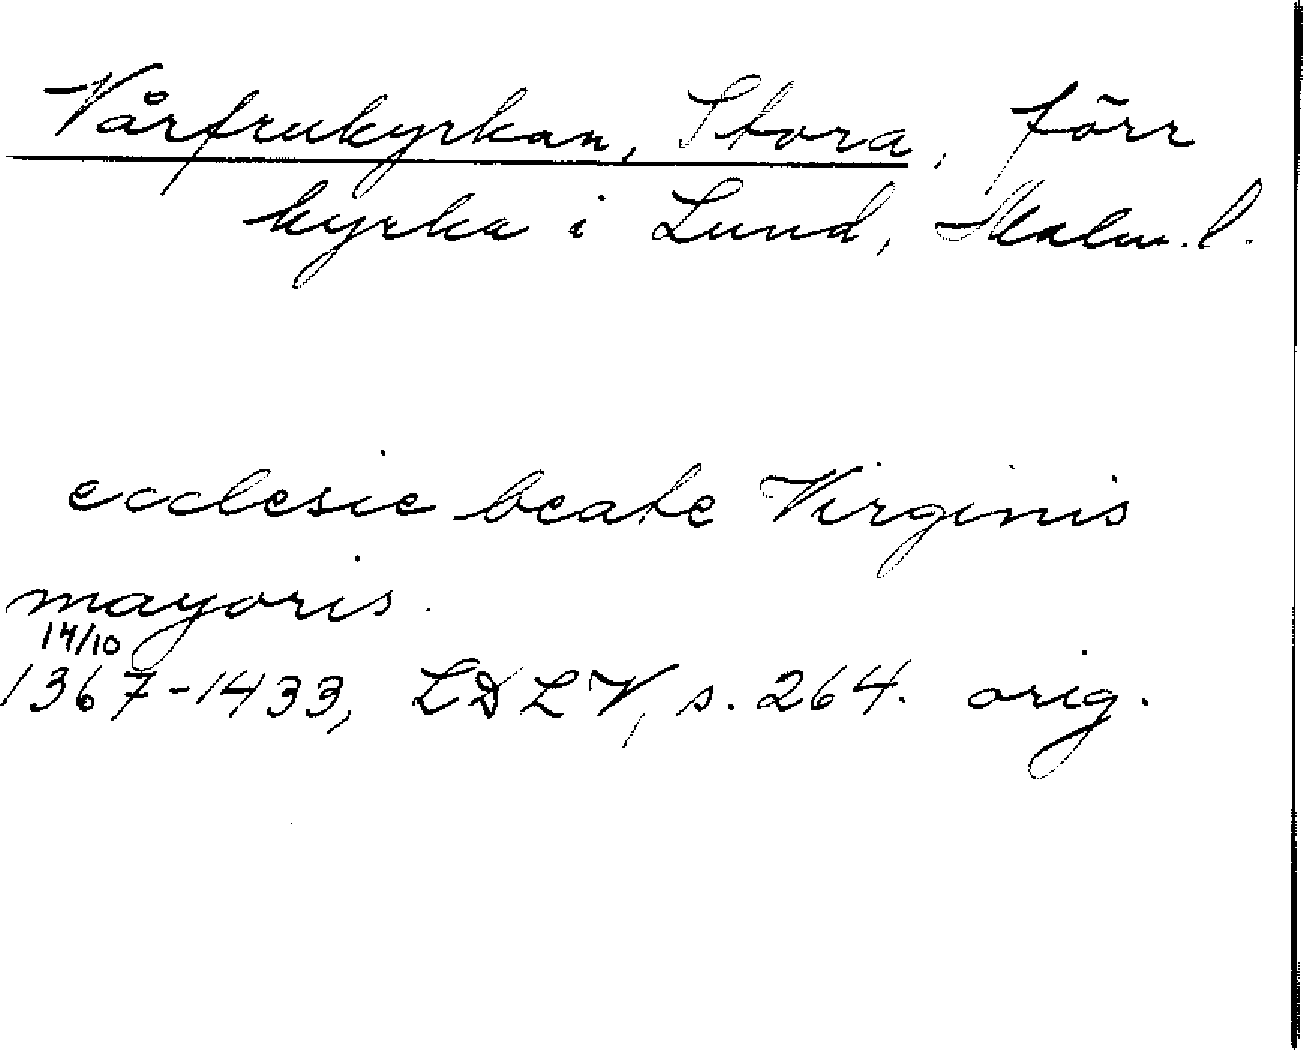 Vårfrukyrkan, Stora, förr
kyrka i Lund, Malm. l.
ecclesie beate Virginis
mayoris.
14/10
1367-1433, LDLV, s. 264. orig.